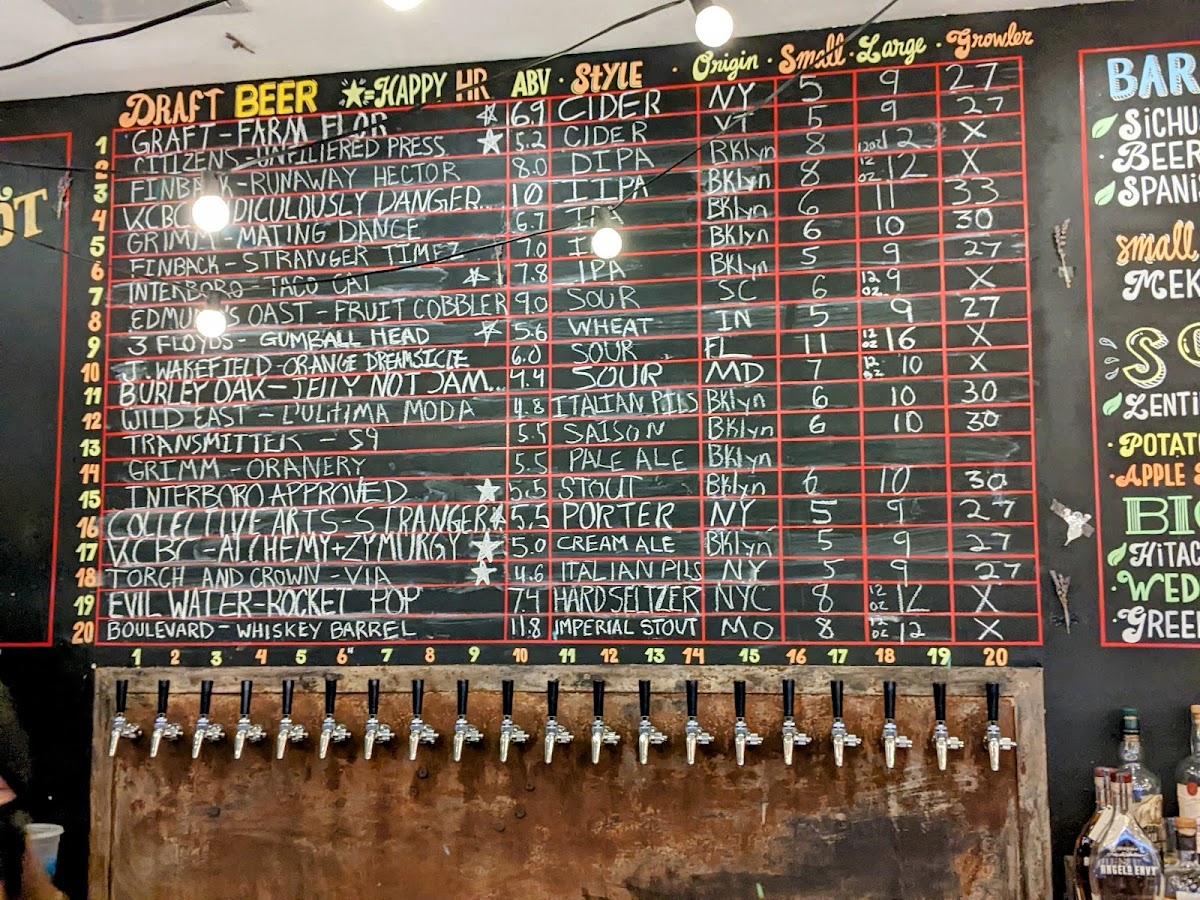 DRAFT BEER ★=HAPPY HR ABV · STYLE · Origin · Small · Large · Growler
1 GRAFT - FARM FLOR ★ 6.9 CIDER NY 5 9 27
2 CITIZENS - UNFILTERED PRESS ★ 5.2 CIDER VT 5 9 27
3 FINBACK - RUNAWAY HECTOR 8.0 DIPA BKlyn 8 12oz 12 X
4 KCBC DICOLOUSLY DANGER... 10 IIPA BKlyn 8 12 oz 12 X
5 GRIMM - MATING DANCE 6.7 IPA BKlyn 6 11 33
6 FINBACK - STRANGER TIMEZ 7.0 BKlyn 6 10 30
7 INTERBORO TACO CAT ★ 7.8 IPA BKlyn 5 9 27
8 EDMUND'S OAST - FRUIT COBBLER 9.0 SOUR SC 6 12 oz. 9 X
9 3 FLOYDS - GUMBALL HEAD ★ 5.6 WHEAT IN 5 9 27
10 J. WAKEFIELD - ORANGE DREAMSICLE 6.0 SOUR FL 11 12 oz 16 X
11 BURLEY OAK - JELLY NOT JAM... 4.4 SOUR MD 7 12 oz 10 X
12 WILD EAST - L'ULITIMA MODA 4.8 ITALIAN PILS BKlyn 6 10 30
13 TRANSMITTER - S9 5.5 SAISON BKlyn 6 10 30
14 GRIMM - ORANERY 5.5 PALE ALE BKlyn
15 INTERBORO APPROVED ★ 5.5 STOUT BKlyn 6 10 30
16 COLLECTIVE ARTS - STRANGER ★ 5.5 PORTER NY 5 9 27
17 KCBC - ALCHEMY + ZYMURGY ★ 5.0 CREAM ALE BKlyn 5 9 27
18 TORCH AND CROWN - VIA ★ 4.6 ITALIAN PILS NY 5 9 27
19 EVIL WATER - ROCKET POP 7.4 HARD SELTZER NYC 8 12 oz 12 X
20 BOULEVARD - WHISKEY BARREL 11.8 IMPERIAL STOUT MO 8 12 oz 12 X
1 2 3 4 5 6 7 8 9 10 11 12 13 14 15 16 17 18 19 20
BAR
SiCHU
BEER
SPANiS
small
MEK
LENTi
· POTAT
· APPLE
BI
HiTAC
WED
GREE
ANGEL'S ENVY